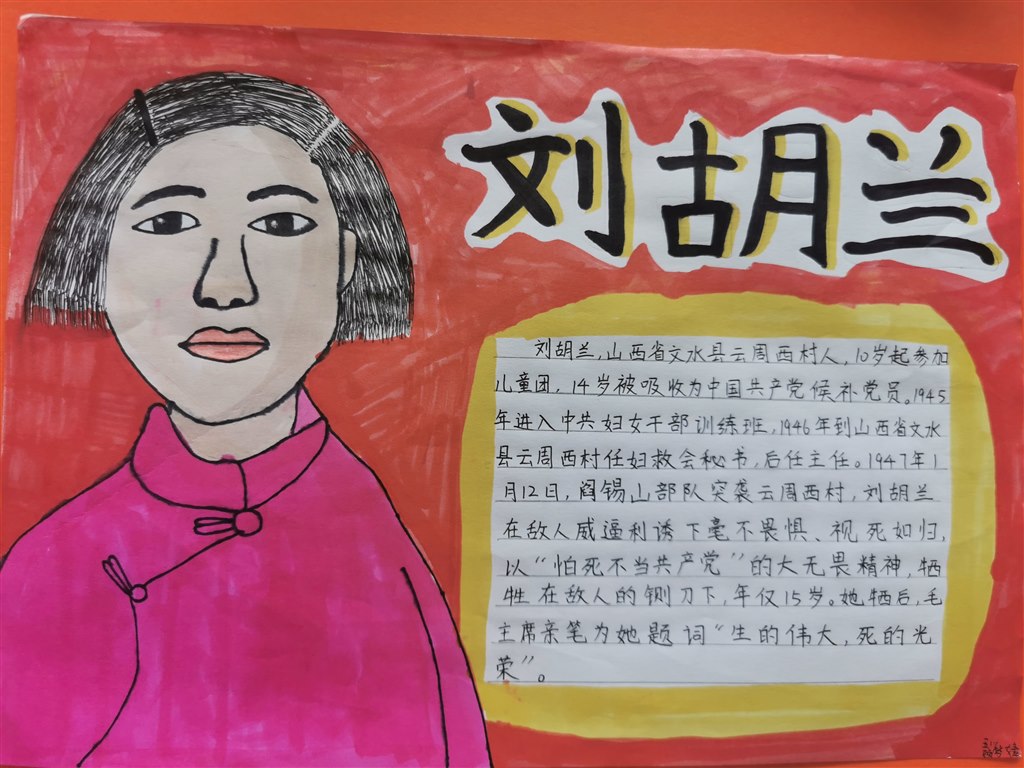 刘胡兰
刘胡兰,山西省文水县云周西村人,10岁起参加
儿童团,14岁被吸收为中国共产党候补党员。1945
年进入中共妇女干部训练班,1946年到山西省文水
县云周西村任妇救会秘书,后任主任。1947年1
月12日,阎锡山部队突袭云周西村,刘胡兰
在敌人威逼利诱下毫不畏惧、视死如归,
以“怕死不当共产党”的大无畏精神,牺
牲在敌人的铡刀下,年仅15岁。她牺后,毛
主席亲笔为她题词“生的伟大,死的光
荣”。